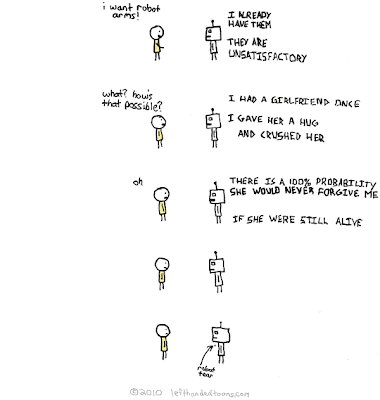 i want robot
arms!
I ALREADY
HAVE THEM
THEY ARE
UNSATISFACTORY
what? how's
that possible?
I HAD A GIRLFRIEND ONCE
I GAVE HER A HUG
AND CRUSHED HER
oh
THERE IS A 100% PROBABILITY
SHE WOULD NEVER FORGIVE ME
IF SHE WERE STILL ALIVE
robot
tear
©2010 lefthandedtoons.com